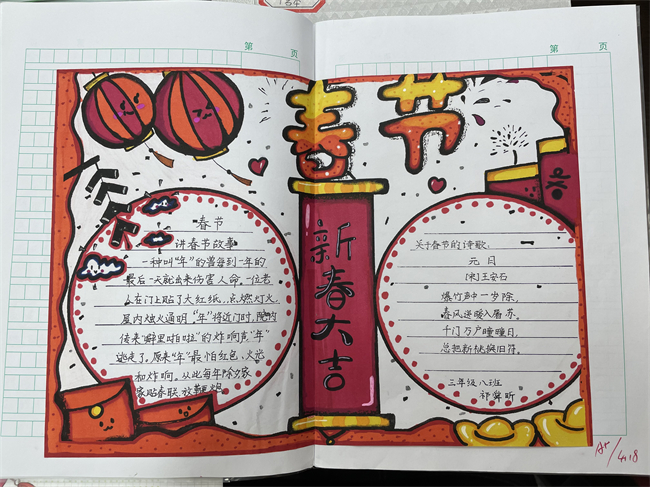 134
第 页
第 页
春节
新春大吉
春节
讲春节故事
一种叫"年"的兽每到一年的
最后一天就出来伤害人命,一位老
人在门上贴了大红纸,点燃灯火,
屋内烛火通明."年"将近门时,院内
传来"噼里啪啦"的炸响声"年"
逃走了,原来"年"最怕红色、火光
和炸响。从此每年除夕家
家贴春联、放鞭炮
关于春节的诗歌:
元日
[宋]王安石
爆竹声中一岁除,
春风送暖入屠苏。
千门万户曈曈日,
总把新桃换旧符。
三年级八班
4.18